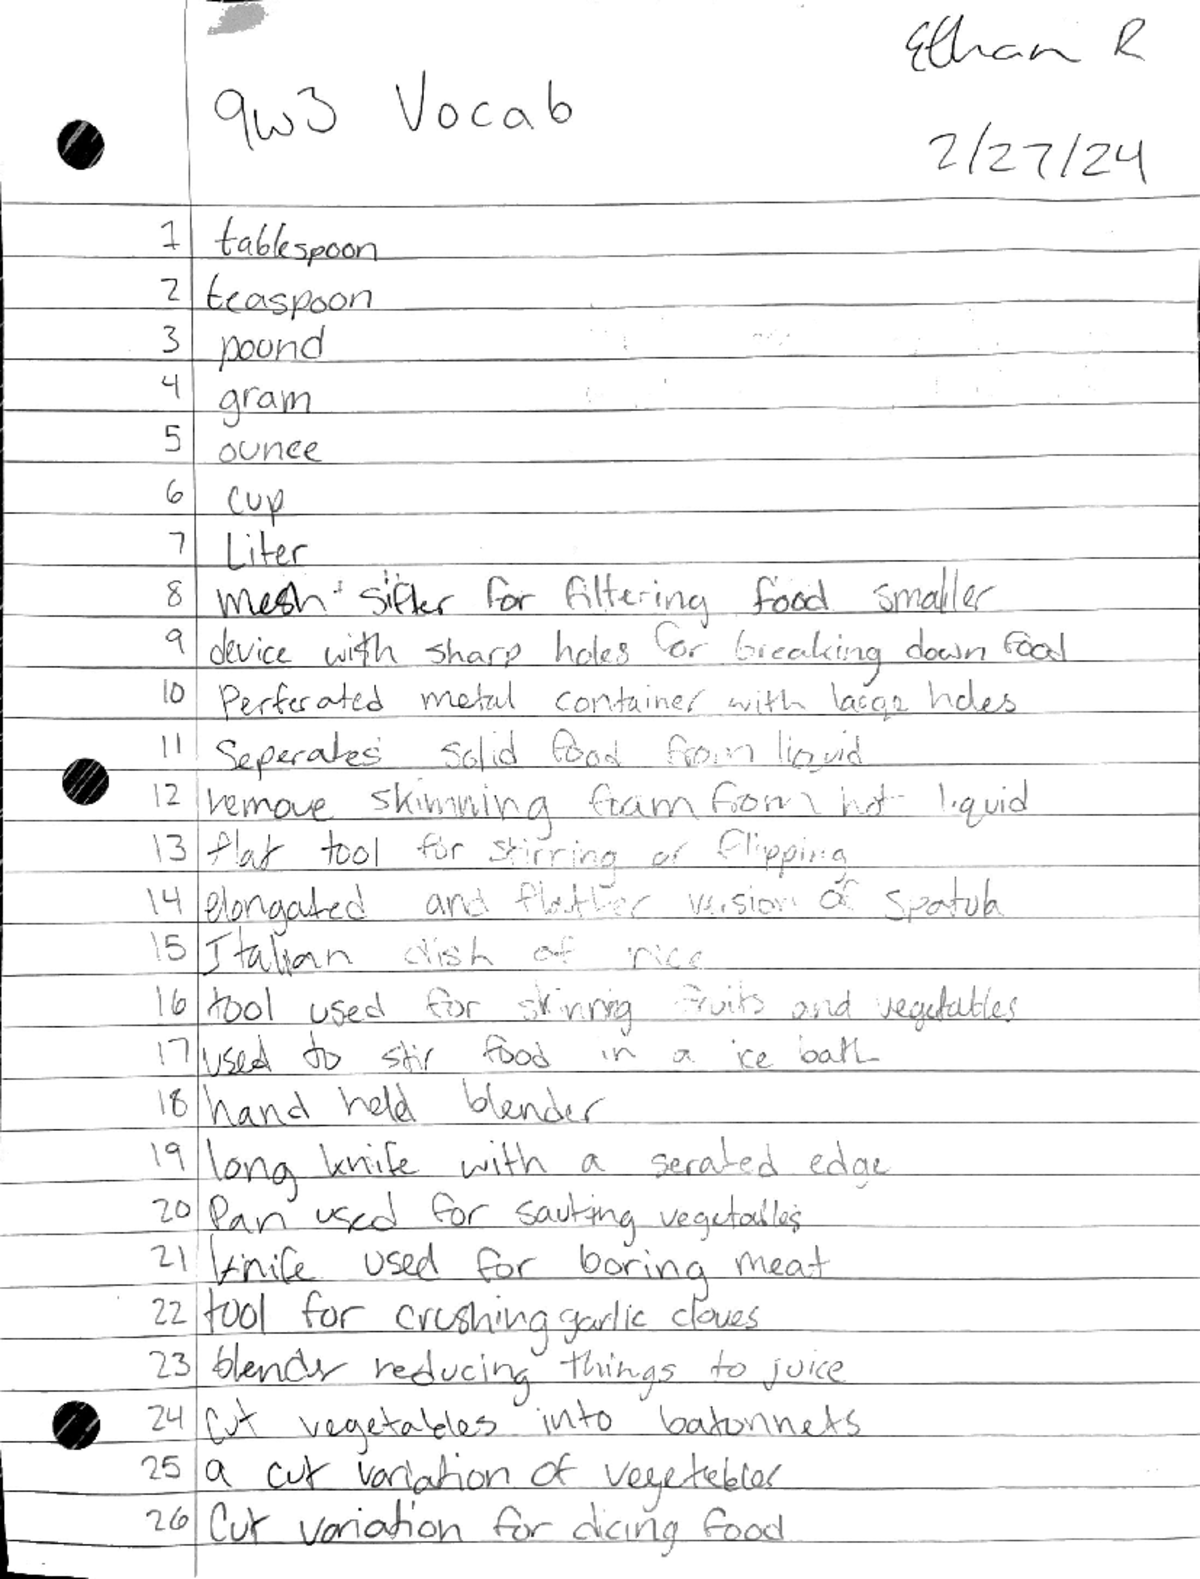 Ethan R
9w3 Vocab
2/27/24
1 tablespoon
2 teaspoon
3 pound
4 gram
5 ounce
6 cup
7 Liter
8 mesh sifter for filtering food smaller
9 device with sharp holes for breaking down food
10 Perferated metal container with large holes
11 Seperates solid food from liquid
12 remove skimming foam from hot liquid
13 flat tool for stirring or flipping
14 elongated and flatter version of spatula
15 Italian dish of rice
16 tool used for skinning fruits and vegetables
17 used to stir food in a ice bath
18 hand held blender
19 long knife with a serated edge
20 Pan used for sauting vegetables
21 knife used for boring meat
22 tool for crushing garlic cloves
23 blender reducing things to juice
24 Cut vegetables into batonnets
25 a cut variation of vegetebles
26 Cut variation for dicing food